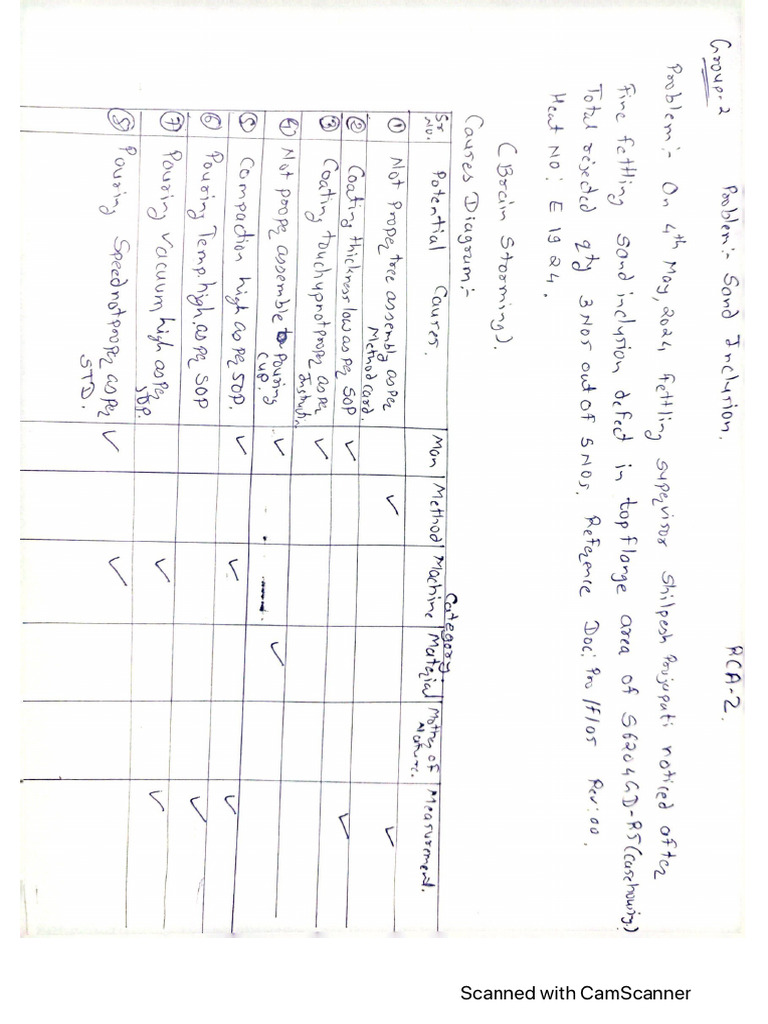 Group-2 Problem:- Sand Inclusion. RCA-2.
Problem:- On 4th May, 2024 fettling supervisor Shilpesh Prajapati noticed after
Fine fettling sand inclusion defect in top flange area of S6204GD-R5 (casehowing)
Total rejected qty 3 Nos out of 5 Nos. Reference Doc: Pro/f/05 Rev:00.
Heat No: E 1924.
(Brain Storming).
Causes Diagram:-
Category
Sr No. Potential Causes. Man Method Machine Material Mother of Nature. Measurement.
① Not proper tree assembly as per Method card. ✓ ✓
② Coating thickness low as per SOP ✓ ✓
③ Coating touchup not proper as per ✓
④ Not proper assemble to Pouring cup. ✓ ✓
⑤ Compaction high as per SOP. ✓ ✓ ✓
⑥ Pouring Temp. high. as per SOP ✓
⑦ Pouring vacuum high as per SOP. ✓ ✓
⑧ Pouring Speed not proper as per STD. ✓ ✓
Scanned with CamScanner